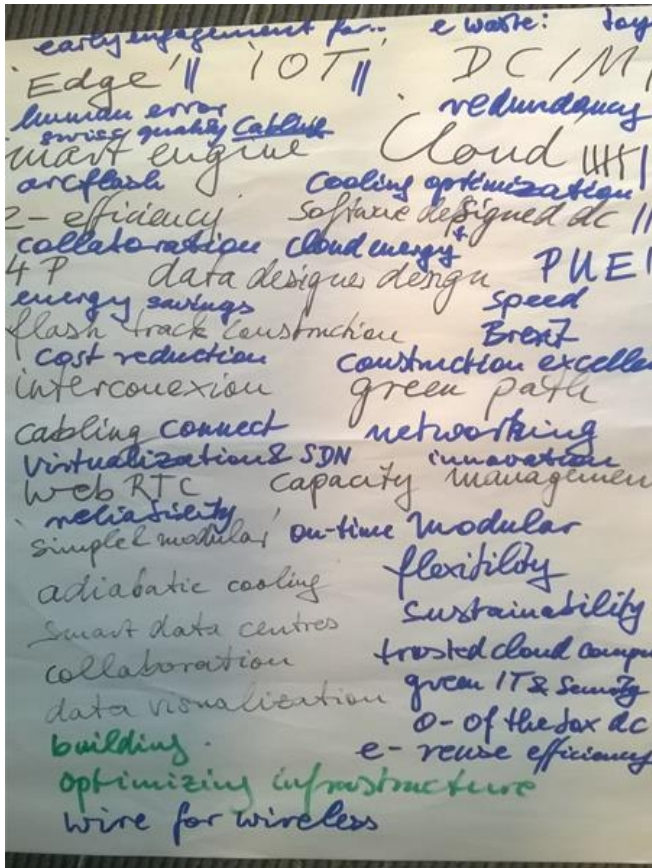 early engagement for.. e waste: toy
'Edge' || 'IOT' || DC/M|
human error redundancy
swiss quality Cabling
mart engine Cloud |||| |
arcflash Cooling optimization
2- efficiency software designed dc ||
collaboration cloud energy +
4 P data designer design PUE |
energy savings speed
flash track construction Brexit
cost reduction construction excellen
interconexion green path
cabling connect networking
virtualization & SDN innovation
Web RTC capacity managemen
reliability
'simple & modular' on-time modular
adiabatic cooling flexibility
smart data centres sustainability
collaboration trusted cloud compu
data visualization green IT & Security
building. o- of the box dc
e- reuse efficiency
optimizing infrastructure
wire for wireless